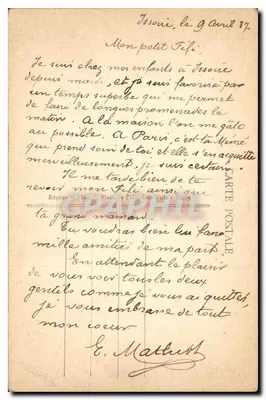 Issoire, le 9 avril 37.
Mon petit Fifi,
Je suis chez mes enfants à Issoire
depuis mardi, et je suis favorisé par
un temps superbe qui me permet
de faire de longues promenades le
matin. A la maison l'on me gâte
au possible. A Paris, c'est ta Mémé
qui prend soin de toi et elle s'en acquitte
merveilleusement, je suis certain.
Il me tarde bien de te
revoir mon Fifi ainsi que
ta grand maman.
Tu voudras bien lui faire
mille amitiés de ma part.
En attendant le plaisir
de vous voir tous les deux
gentils comme je vous ai quittés,
je vous embrasse de tout
mon coeur
E.
CARTE POSTALE